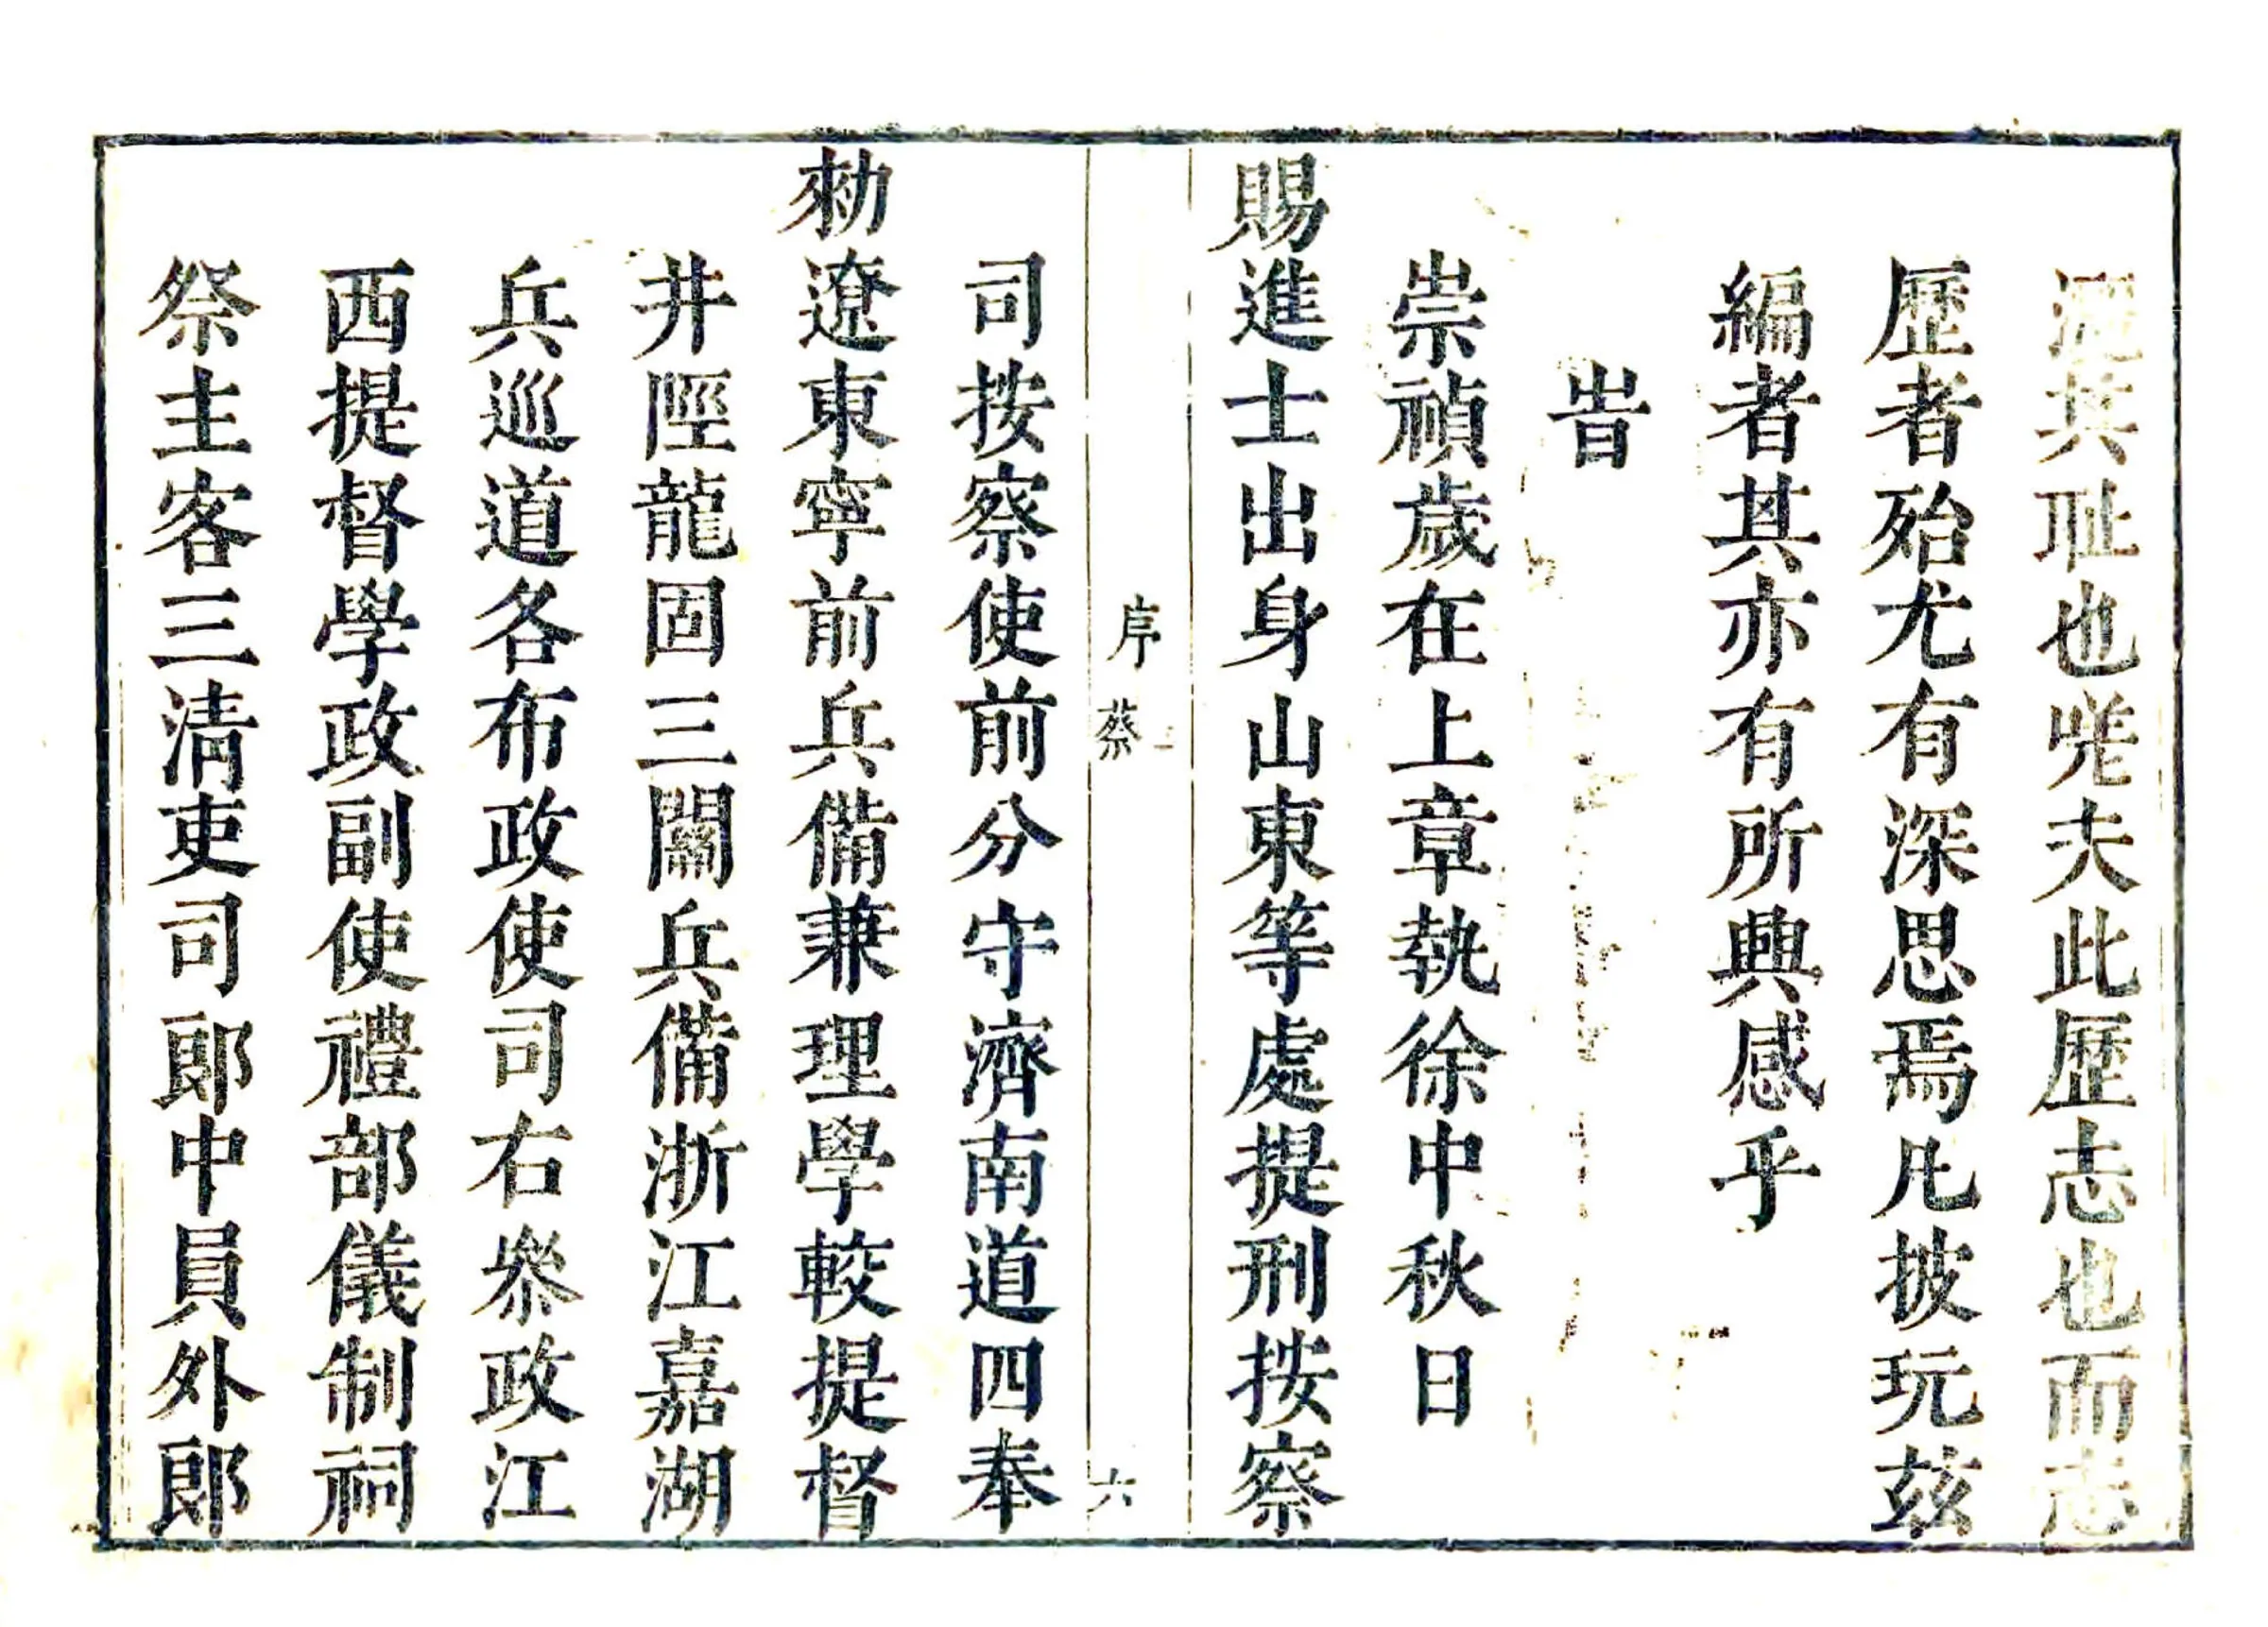 灑其耻也嗟夫此歴志也而志
歴者殆尤有深思焉凡披玩兹
編者其亦有所興感乎
旹
崇禎歲在上章執徐中秋日
賜進士出身山東等處提刑按察
序 蔡 六
司按察使前分守濟南道四奉
勑遼東寧前兵備兼理學較提督
井陘龍固三關兵備浙江嘉湖
兵巡道各布政使司右叅政江
西提督學政副使禮部儀制祠
祭主客三清吏司郎中員外郎